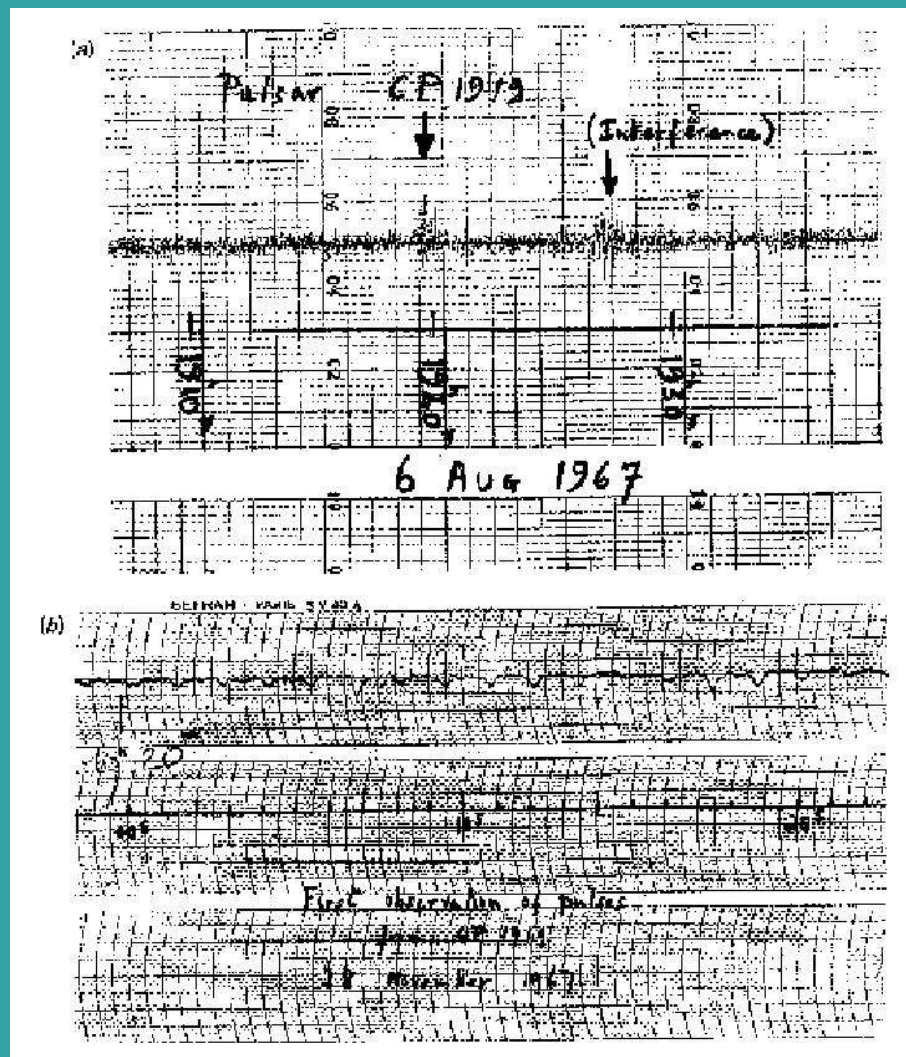 (a)
Pulsar CP 1919
(Interference)
0.8
0.6 0.6
0.4 0.4
0.2
1910 1920 1930
6 Aug 1967
(b)
19h 20
10s
First observation of pulses
from CP 1919
28 November 1967